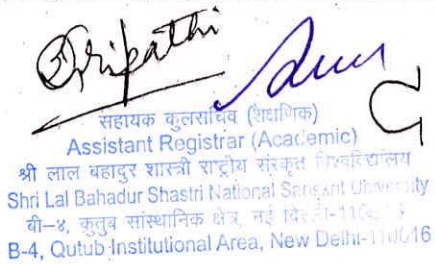 Tripathi
सहायक कुलसचिव (शैक्षणिक)
Assistant Registrar (Academic)
श्री लाल बहादुर शास्त्री राष्ट्रीय संस्कृत विश्वविद्यालय
Shri Lal Bahadur Shastri National Sanskrit University
बी-४, कुतुब सांस्थानिक क्षेत्र, नई दिल्ली-1100
B-4, Qutub Institutional Area, New Delhi-110016